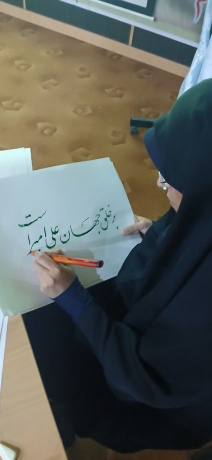 بر خلق جهان علی امیر است